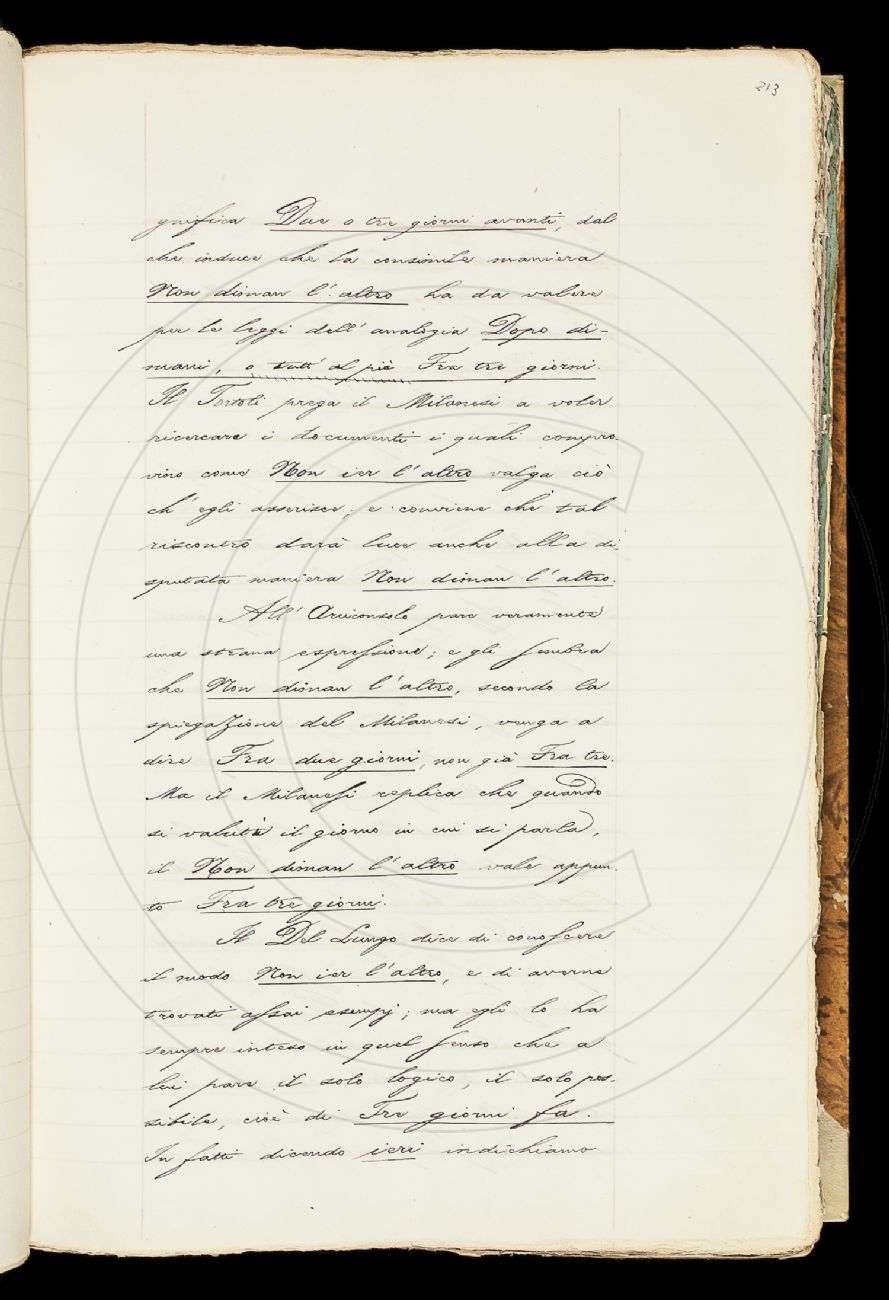 213
gnifica Due o tre giorni avanti, dal
che induce che la consimile maniera
Non diman l'altro ha da valere
per le leggi dell'analogia Dopo di-
mani, o tutt'al più Fra tre giorni.
Il Tortoli prega il Milanesi a voler
ricercare i documenti i quali compro-
vino come Non ier l'altro valga ciò
ch'egli asserisce; e conviene che tal
riscontro darà luce anche alla di-
sputata maniera Non diman l'altro.
All'Arciconsolo pare veramente
una strana espressione; e gli sembra
che Non diman l'altro, secondo la
spiegazione del Milanesi, venga a
dire Fra due giorni, non già Fra tre.
Ma il Milanesi replica che quando
si valuti il giorno in cui si parla,
il Non diman l'altro vale appun-
to Fra tre giorni.
Il Del Lungo dice di conoscere
il modo Non ier l'altro, e di averne
trovati assai esempj; ma egli lo ha
sempre inteso in quel senso che a
lui pare il solo logico, il solo pos-
sibile, cioè di Tre giorni fa.
In fatti dicendo ieri indichiamo